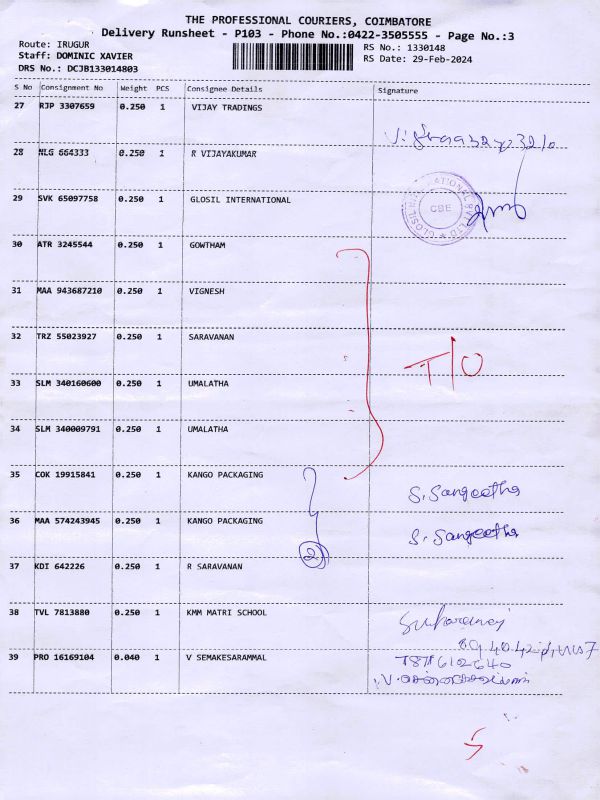 THE PROFESSIONAL COURIERS, COIMBATORE
Delivery Runsheet - P103 - Phone No.:0422-3505555 - Page No.:3
Route: IRUGUR
Staff: DOMINIC XAVIER
DRS No.: DCJB133014803
RS No.: 1330148
RS Date: 29-Feb-2024
S No Consignment No Weight PCS Consignee Details Signature
27 RJP 3307659 0.250 1 VIJAY TRADINGS
28 NLG 664333 0.250 1 R VIJAYAKUMAR
29 SVK 65097758 0.250 1 GLOSIL INTERNATIONAL
CBE
30 ATR 3245544 0.250 1 GOWTHAM
31 MAA 943687210 0.250 1 VIGNESH
32 TRZ 55023927 0.250 1 SARAVANAN
T/O
33 SLM 340160600 0.250 1 UMALATHA
34 SLM 340009791 0.250 1 UMALATHA
35 COK 19915841 0.250 1 KANGO PACKAGING S. Sangeetha
36 MAA 574243945 0.250 1 KANGO PACKAGING S. Sangeetha
2
37 KDI 642226 0.250 1 R SARAVANAN
38 TVL 7813880 0.250 1 KMM MATRI SCHOOL
39 PRO 16169104 0.040 1 V SEMAKESARAMMAL